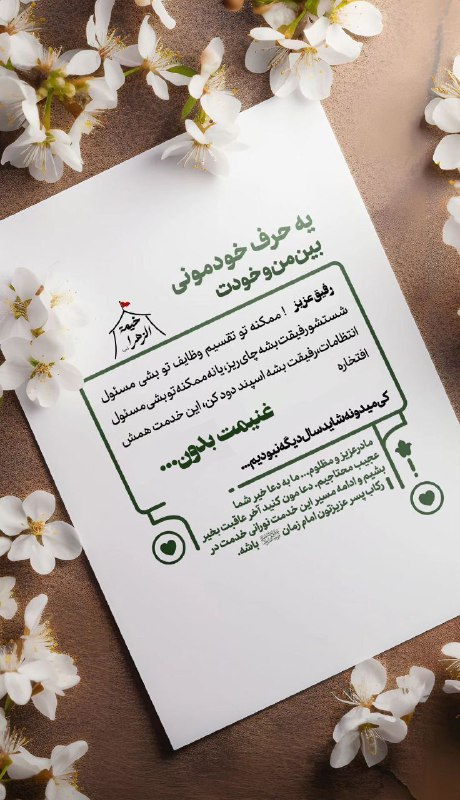 یه حرف خودمونی
بین من و خودت
خیمة الزهرا
رفیق عزیز ! ممکنه تو تقسیم وظایف تو بشی مسئول
شستشو رفیقت بشه چای ریز، یا نه ممکنه تو بشی مسئول
انتظامات، رفیقت بشه اسپند دود کن، این خدمت همش
افتخاره
غنیمت بدون...
کی میدونه شاید سال دیگه نبودیم...
مادر عزیز و مظلوم... ما به دعا خیر شما
عجیب محتاجیم. دعامون کنید آخر عاقبت بخیر
بشیم و ادامه مسیر این خدمت نورانی خدمت در
رکاب پسر عزیزتون امام زمان باشه.